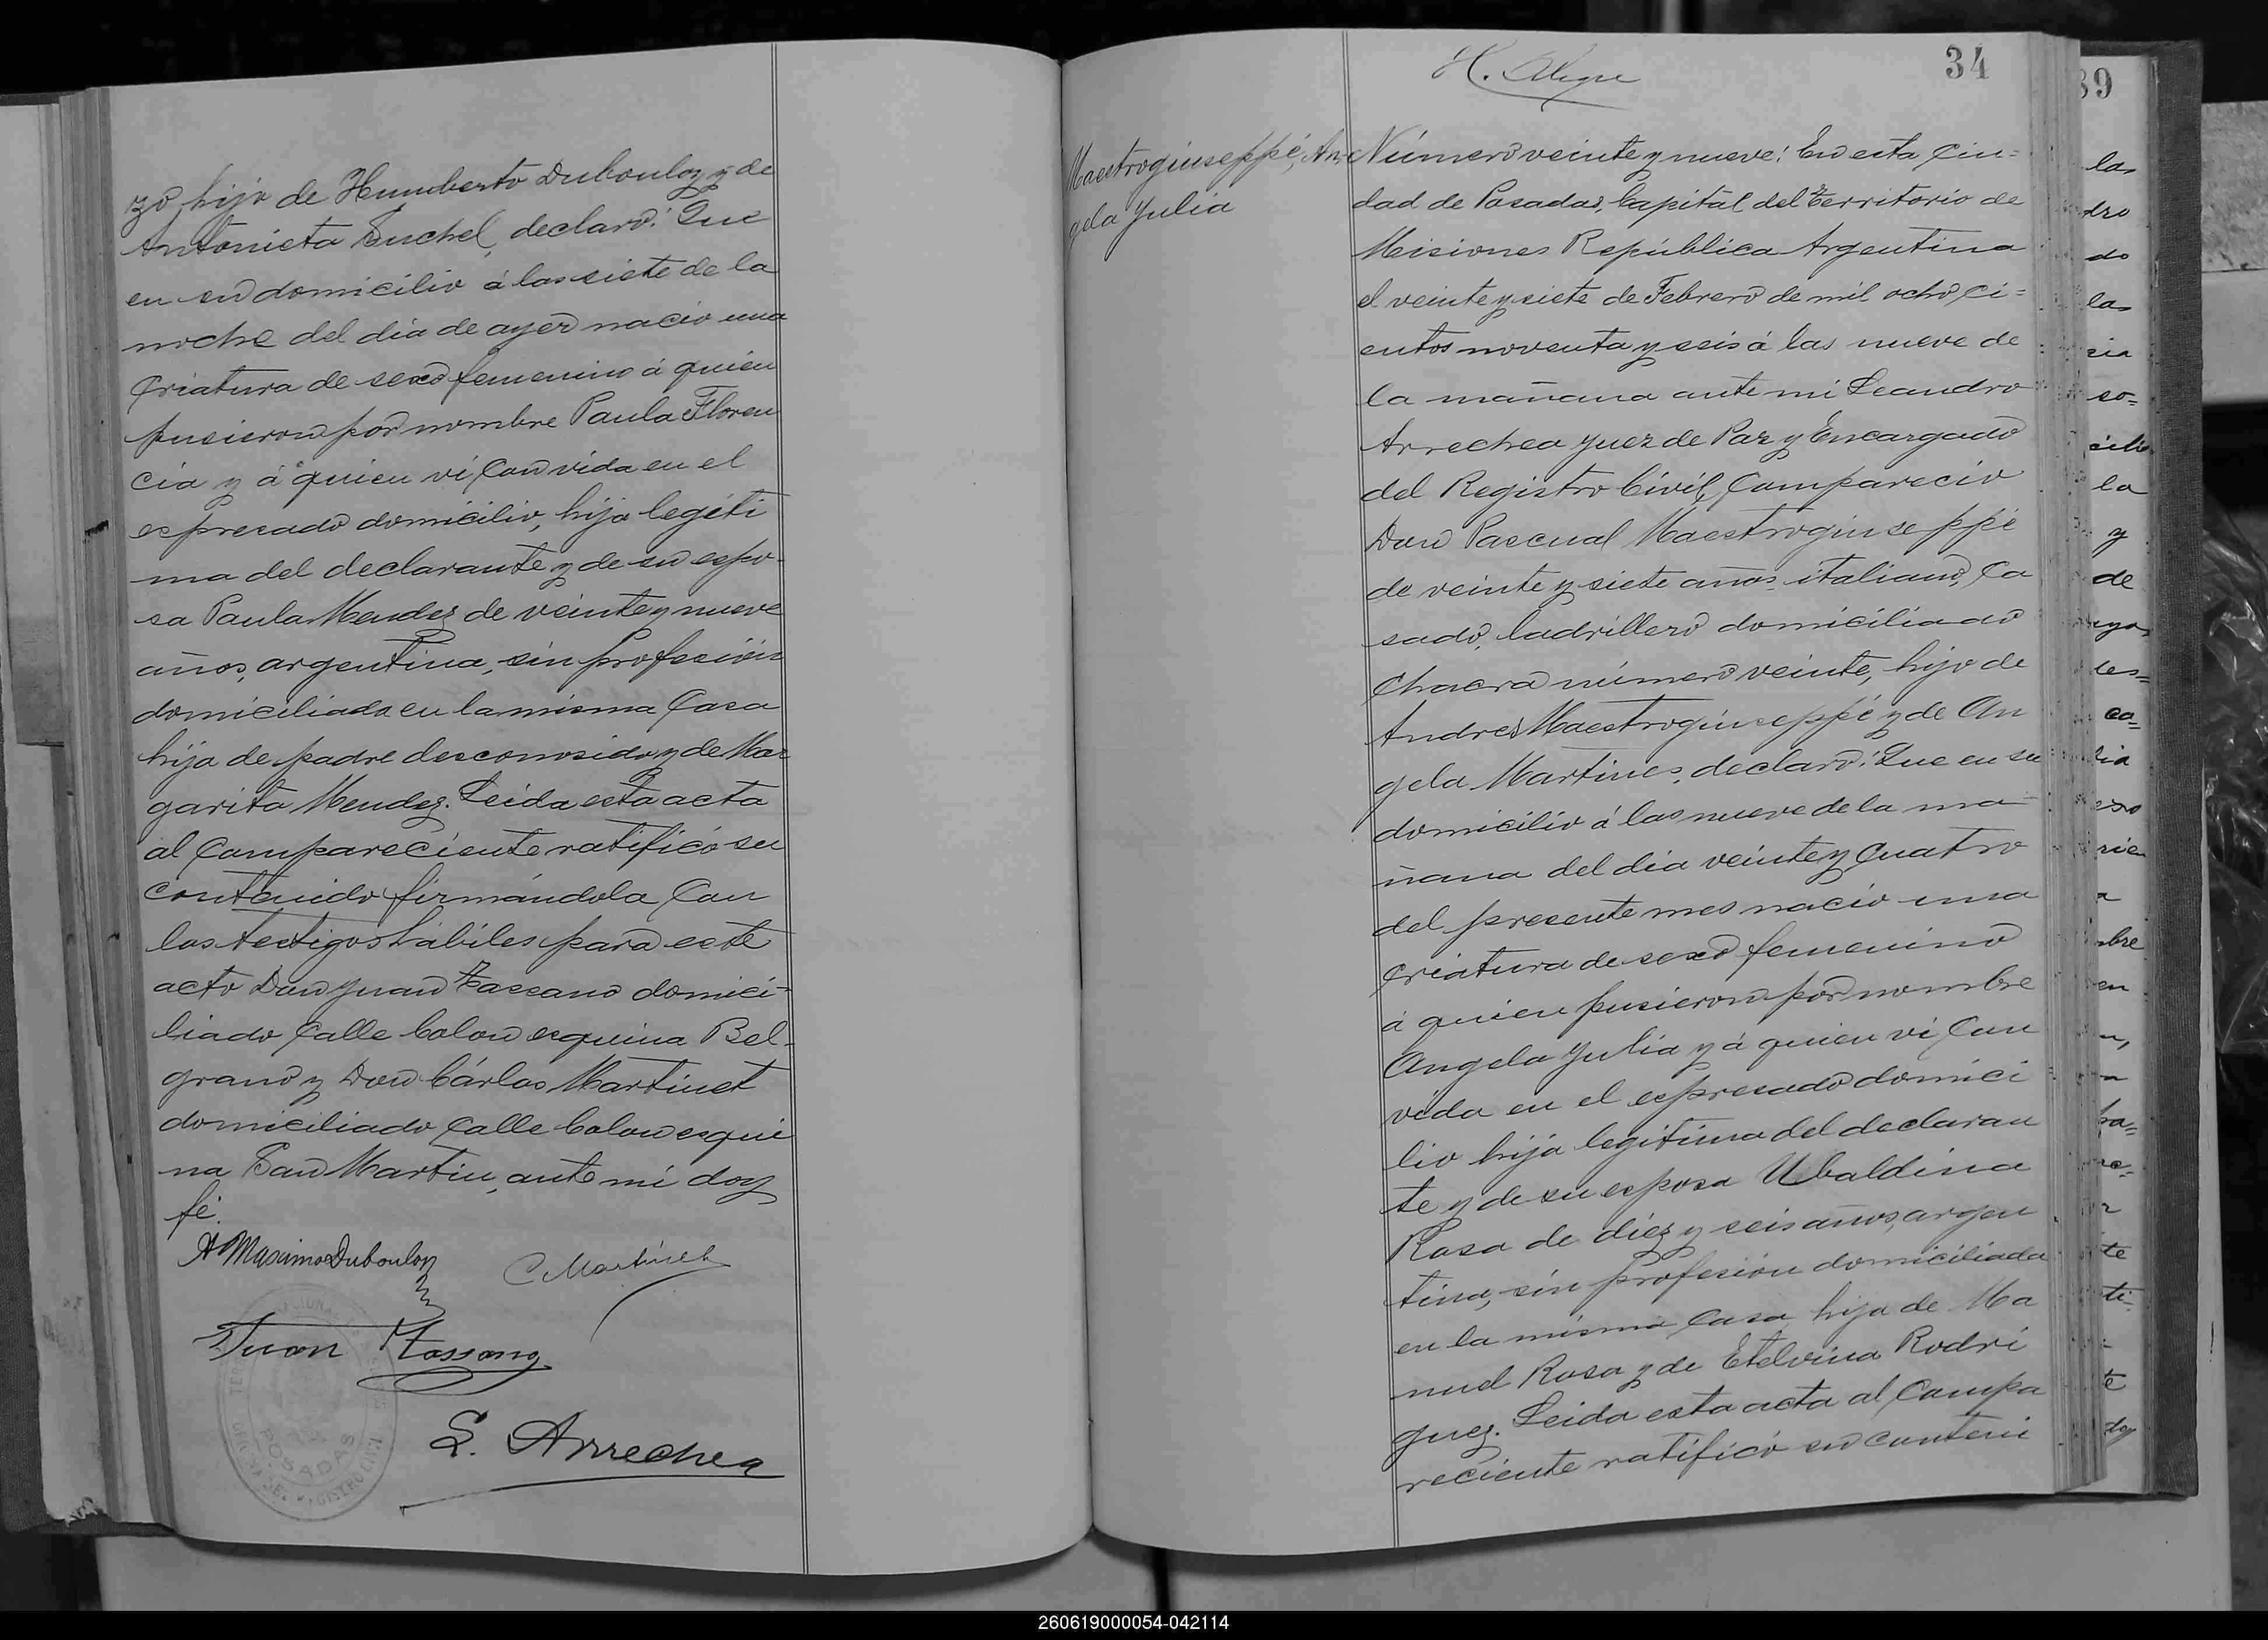 zo, hijo de Humberto Dubouloz y de
Antonieta Suchel, declaró: Que
en su domicilio á las siete de la
noche del dia de ayer nació una
criatura de sexo femenino á quien
pusieron por nombre Paula Floren
cia y á quien vi con vida en el
espresado domicilio, hija legíti
ma del declarante y de su espo-
sa Paula Mendez de veinte y nueve
años, argentina, sin profesión
domiciliada en la misma casa
hija de padre desconosido y de Mar
garita Mendez. Leida esta acta
al compareciente ratificó su
contenido firmándola con
los testigos hábiles para este
acto Don Juan Tassano domici-
liado calle Colon esquina Bel-
grano y Don Cárlos Martinet
domiciliado calle Colon esqui
na San Martin, ante mi doy
fé.
A Masimo Dubouloz
C Martinet
Juan Tassano
L. Arrechea
POSADAS
H. Alegre
34
Maestrogiuseppé, An-
gela Julia
Número veinte y nueve: En esta ciu=
dad de Posadas, Capital del Territorio de
Misiones República Argentina
el veinte y siete de Febrero de mil ocho ci=
entos noventa y seis á las nueve de
la mañana ante mi Leandro
Arrechea Juez de Paz y Encargado
del Registro Civil, compareció
Don Pascual Maestrogiuseppé
de veinte y siete años, italiano, ca
sado, ladrillero domiciliado
Chacra número veinte, hijo de
Andres Maestrogiuseppé y de An
gela Martines, declaró: Que en su
domicilio á las nueve de la ma
ñana del dia veinte y cuatro
del presente mes nació una
criatura de sexo femenino
á quien pusieron por nombre
Angela Julia y á quien vi con
vida en el espresado domici
lio hija legítima del declaran
te y de su esposa Ubaldina
Rosa de diez y seis años, argen
tina, sin profesión domiciliada
en la misma casa hija de Ma
nuel Rosa y de Etelvina Rodri
guez. Leida esta acta al compa
reciente ratificó su conteni
39
la
dro
do
la
cia
so=
cilio
la
y
de
les=
ca=
lia
exo
rie
a
bre
en
te
ti=
te
doy
260619000054-042114